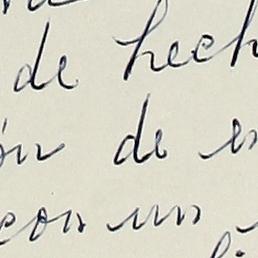 de hech
ón de es
con un